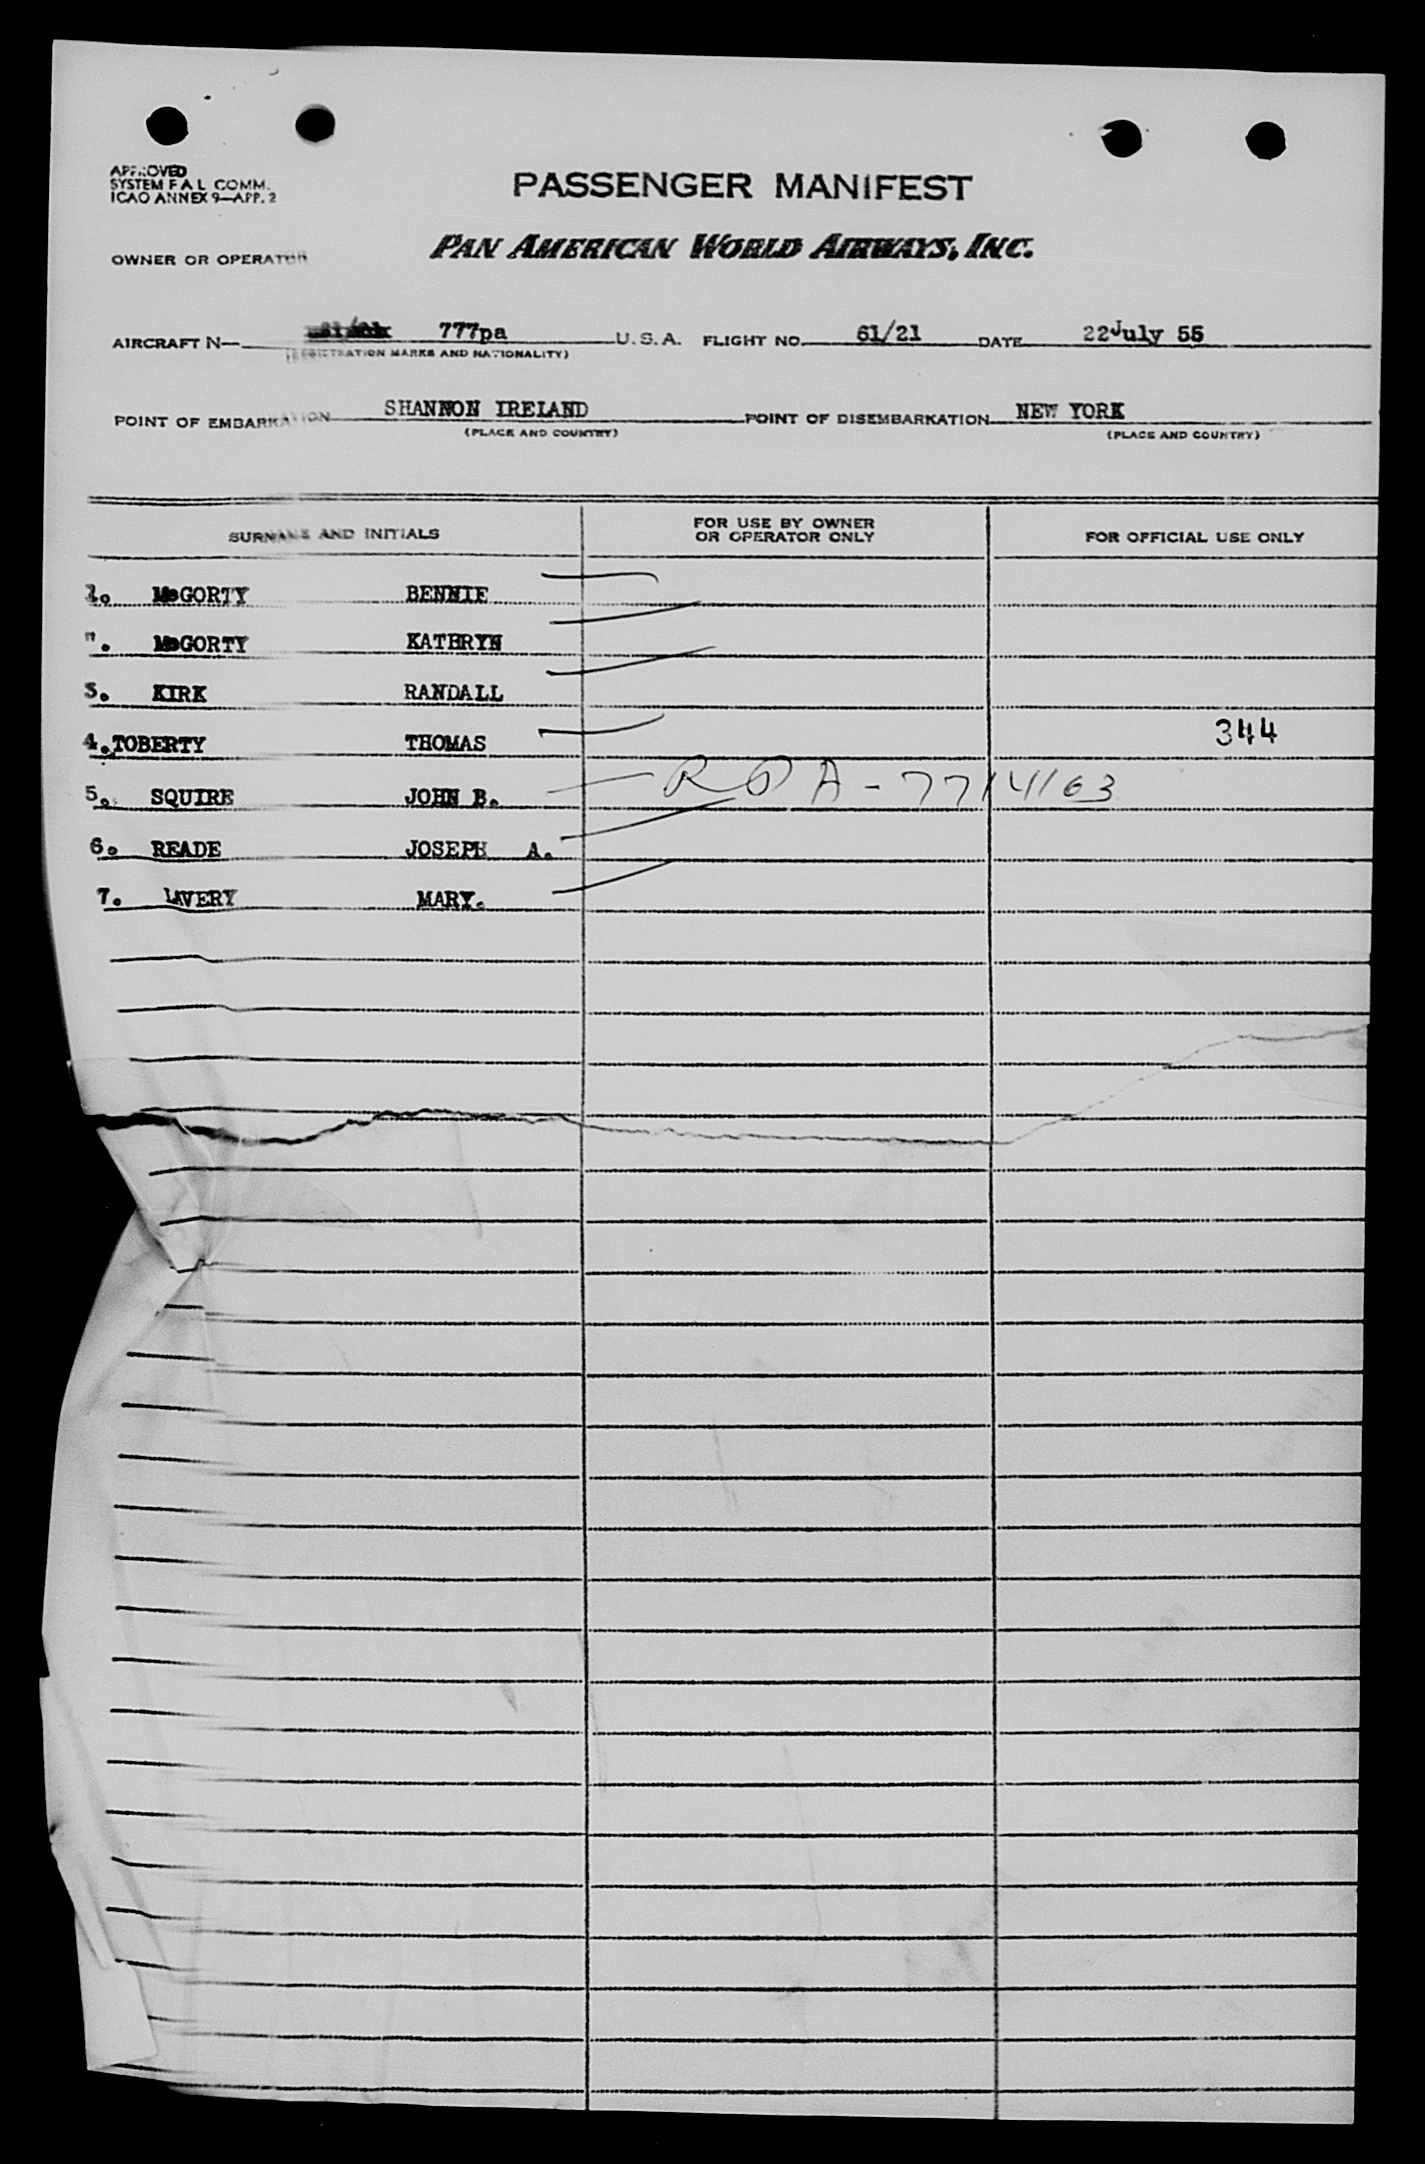 APPROVED
SYSTEM F A L COMM.
ICAO ANNEX 9—APP. 2
PASSENGER MANIFEST
OWNER OR OPERATOR PAN AMERICAN WORLD AIRWAYS, INC.
AIRCRAFT N— 777pa U. S. A. FLIGHT NO. 61/21 DATE 22July 55
(REGISTRATION MARKS AND NATIONALITY)
POINT OF EMBARKATION SHANNON IRELAND POINT OF DISEMBARKATION NEW YORK
(PLACE AND COUNTRY) (PLACE AND COUNTRY)
SURNAME AND INITIALS FOR USE BY OWNER OR OPERATOR ONLY FOR OFFICIAL USE ONLY
1. McGORTY BENNIE
". McGORTY KATHRYN
3. KIRK RANDALL
4. TOBERTY THOMAS 344
5. SQUIRE JOHN B. — R O A - 7714163
6. READE JOSEPH A.
7. LAVERY MARY.